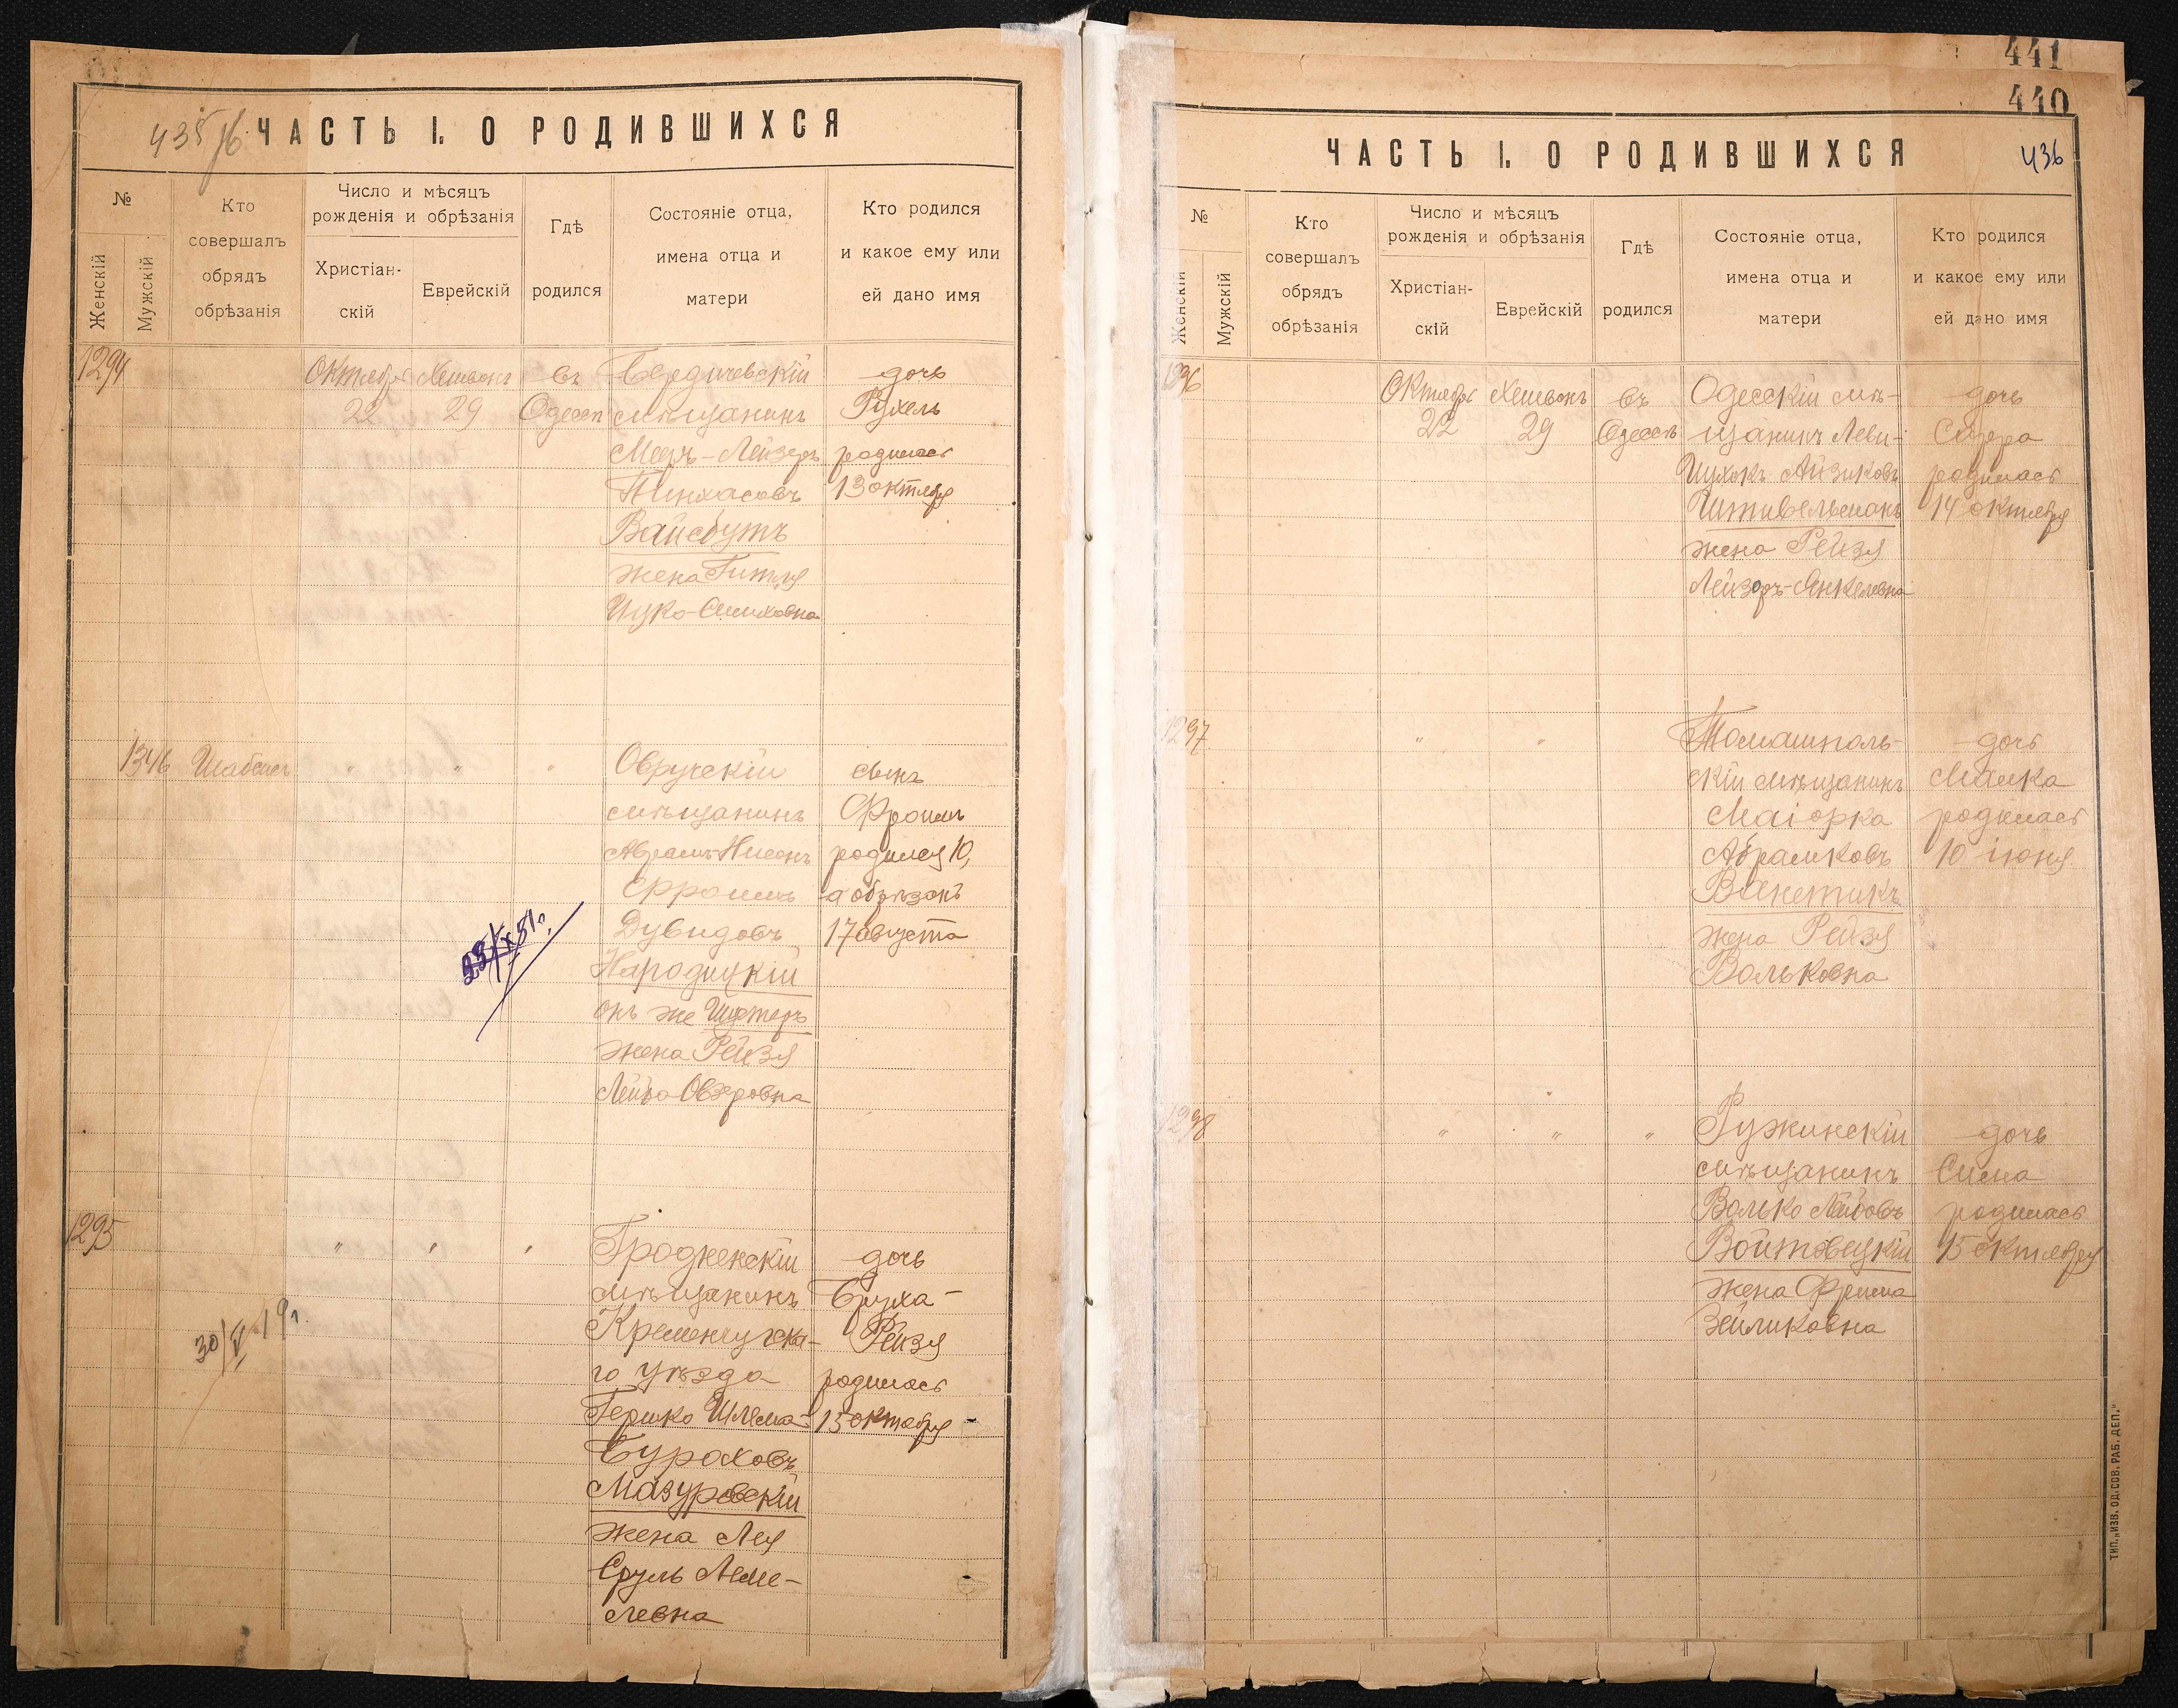 435/б.
ЧАСТЬ I. О РОДИВШИХСЯ
№
Женскій
Мужскій
Кто
совершалъ
обрядъ
обрѣзанія
Число и мѣсяцъ
рожденія и обрѣзанія
Христіан-
скій
Еврейскій
Гдѣ
родился
Состояніе отца,
имена отца и
матери
Кто родился
и какое ему или
ей дано имя
1294
Октябрь
22
29
въ
Одессѣ
Бердичевскій
мѣщанинъ
Меер-Лейзеръ
Пинхасовъ
Вайсбутъ
жена Гитля
дочь
Рухель
родилась
13 октября
1346
"
"
"
Овручскій
мѣщанинъ
Фроимъ
Дувидовъ
Народицкій
онъ же Шустеръ
жена Рейзя
сынъ
Фроимъ
родился 10,
а обрѣзанъ
17 августа
1295
"
"
"
Гродненскій
мѣщанинъ
Кременчугска-
го уѣзда
Гершко Шлема-
Бураховъ
Мазуровскій
жена Лея
Сруль
дочь
Бруха-
Рейзя
родилась
15 октября
30/V 19г.
441
440
436
ЧАСТЬ I. О РОДИВШИХСЯ
№
Женскій
Мужскій
Кто
совершалъ
обрядъ
обрѣзанія
Число и мѣсяцъ
рожденія и обрѣзанія
Христіан-
скій
Еврейскій
Гдѣ
родился
Состояніе отца,
имена отца и
матери
Кто родился
и какое ему или
ей дано имя
1296
Октябрь
22
Хешвонъ
29
въ
Одессѣ
Одесскій мѣ-
щанинъ Леви-
Айзиковъ
Штивельманъ
жена Рейзя
Лейзоръ-Янкелевна
дочь
Сарра
родилась
14 октября
1297
"
"
Томашполь-
скій мѣщанинъ
Маіорка
Абрамковъ
Ванетикъ
жена Рейзя
Вольковна
дочь
Малка
родилась
10 іюня
1298
"
"
"
Ружинскій
мѣщанинъ
Волько Лейбовъ
Войтовецкій
жена Фрима
Зейликовна
дочь
Сима
родилась
15 октября
ТИП. „ИЗВ. ОД. СОВ. РАБ. ДЕП."